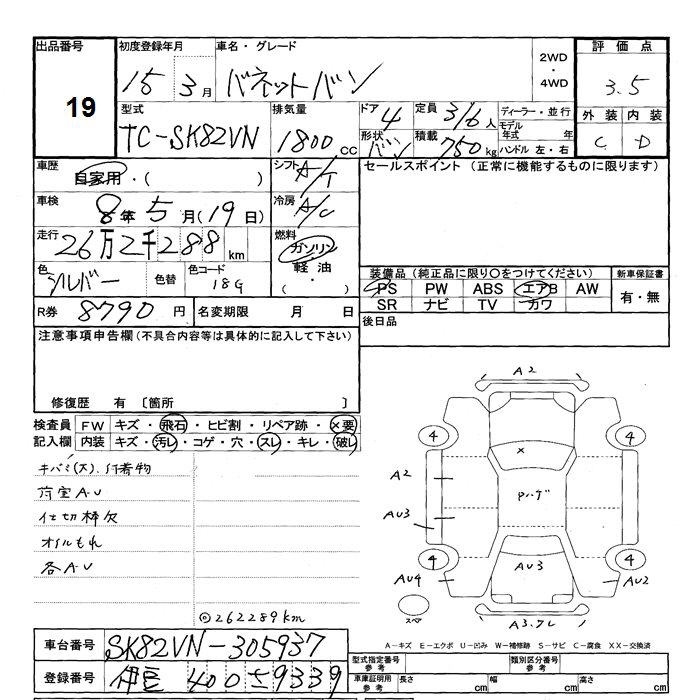 出品番号
19
初度登録年月
15 3月
車名・グレード
バネットバン
2WD
・
4WD
評価点
3.5
外装 内装
C D
型式
TC-SK82VN
排気量
1800 cc
ドア 4
形状 バン
定員 3/6人
積載 750 kg
ディーラー・並行
モデル年式 年
ハンドル 左・右
車歴
自家用・( )
シフト A/T
セールスポイント (正常に機能するものに限ります)
車検
8年5月(19日)
冷房 A/C
走行
26万2千288km
燃料
ガソリン
軽油
( ・ )
色
シルバー
色替
色コード
18G
装備品 (純正品に限り○をつけてください)
新車保証書
PS PW ABS エアB AW
有・無
SR ナビ TV カワ
R券 8790円
名変期限 月 日
後日品
注意事項申告欄(不具合内容等は具体的に記入して下さい)
修復歴 有 〔箇所 〕
検査員 記入欄
FW キズ・飛石・ヒビ割・リペア跡・×要
内装 キズ・汚レ・コゲ・穴・スレ・キレ・破レ
荷室AU
仕切棒欠
オイルもれ
各AU
◎262289km
A2
4 4
×
A2
AU3
Pハゲ
4 4
AU3
AU4 AU2
スペア
A3.クレ
A-キズ E-エクボ U-凹み W-補修跡 S-サビ C-腐食 XX-交換済
車台番号 SK82VN-305937
登録番号 伊豆 400 さ9339
型式指定番号 参考
類別区分番号 参考
車庫証明用 参考
長さ cm 幅 cm 高さ cm